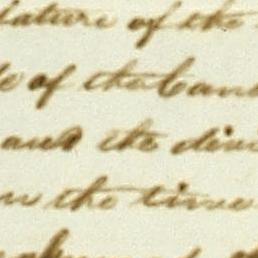 lature of the
of the Cana
and the divi
the time